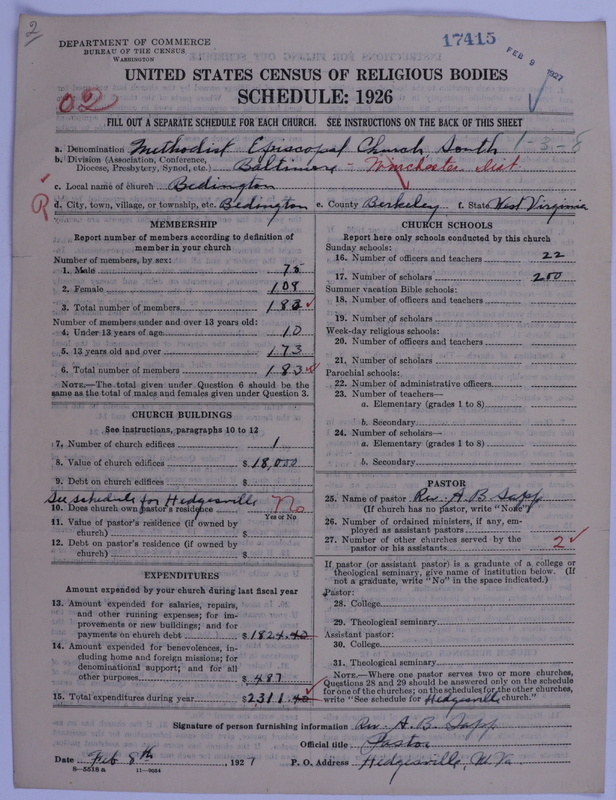 2
17415
FEB 9 1927
DEPARTMENT OF COMMERCE
BUREAU OF THE CENSUS
WASHINGTON
UNITED STATES CENSUS OF RELIGIOUS BODIES
SCHEDULE: 1926
02
FILL OUT A SEPARATE SCHEDULE FOR EACH CHURCH. SEE INSTRUCTIONS ON THE BACK OF THIS SHEET
a. Denomination Methodist Episcopal Church South 1-3-8
b. Division (Association, Conference, Diocese, Presbytery, Synod, etc.) Baltimore - Winchester Dist
c. Local name of church Bedington
R
d. City, town, village, or township, etc. Bedington e. County Berkeley f. State West Virginia
MEMBERSHIP
Report number of members according to definition of
member in your church
Number of members, by sex:
1. Male 75
2. Female 108
3. Total number of members 183
Number of members under and over 13 years old:
4. Under 13 years of age 10
5. 13 years old and over 173
6. Total number of members 183
NOTE.—The total given under Question 6 should be the
same as the total of males and females given under Question 3.
CHURCH BUILDINGS
See instructions, paragraphs 10 to 12
7. Number of church edifices 1
8. Value of church edifices $18,000
9. Debt on church edifices $
See schedule for Hedgesville
10. Does church own pastor's residence No
Yes or No
11. Value of pastor's residence (if owned by
church) $
12. Debt on pastor's residence (if owned by
church) $
EXPENDITURES
Amount expended by your church during last fiscal year
13. Amount expended for salaries, repairs,
and other running expenses; for im-
provements or new buildings; and for
payments on church debt $1824.40
14. Amount expended for benevolences, in-
cluding home and foreign missions; for
denominational support; and for all
other purposes $487
15. Total expenditures during year $2311.40
CHURCH SCHOOLS
Report here only schools conducted by this church
Sunday schools:
16. Number of officers and teachers 22
17. Number of scholars 200
Summer vacation Bible schools:
18. Number of officers and teachers
19. Number of scholars
Week-day religious schools:
20. Number of officers and teachers
21. Number of scholars
Parochial schools:
22. Number of administrative officers
23. Number of teachers—
a. Elementary (grades 1 to 8)
b. Secondary
24. Number of scholars—
a. Elementary (grades 1 to 8)
b. Secondary
PASTOR
25. Name of pastor Rev. A B Sapp
(If church has no pastor, write "None")
26. Number of ordained ministers, if any, em-
ployed as assistant pastors
27. Number of other churches served by the
pastor or his assistants 2
If pastor (or assistant pastor) is a graduate of a college or
theological seminary, give name of institution below. (If
not a graduate, write "No" in the space indicated.)
Pastor:
28. College
29. Theological seminary
Assistant pastor:
30. College
31. Theological seminary
NOTE.—Where one pastor serves two or more churches,
Questions 28 and 29 should be answered only on the schedule
for one of the churches; on the schedules for the other churches,
write "See schedule for Hedgesville church."
Signature of person furnishing information Rev. A. B. Sapp
Official title Pastor
Date Feb 8th, 1927 P. O. Address Hedgesville, W. Va.
8—5518 a 11—9084